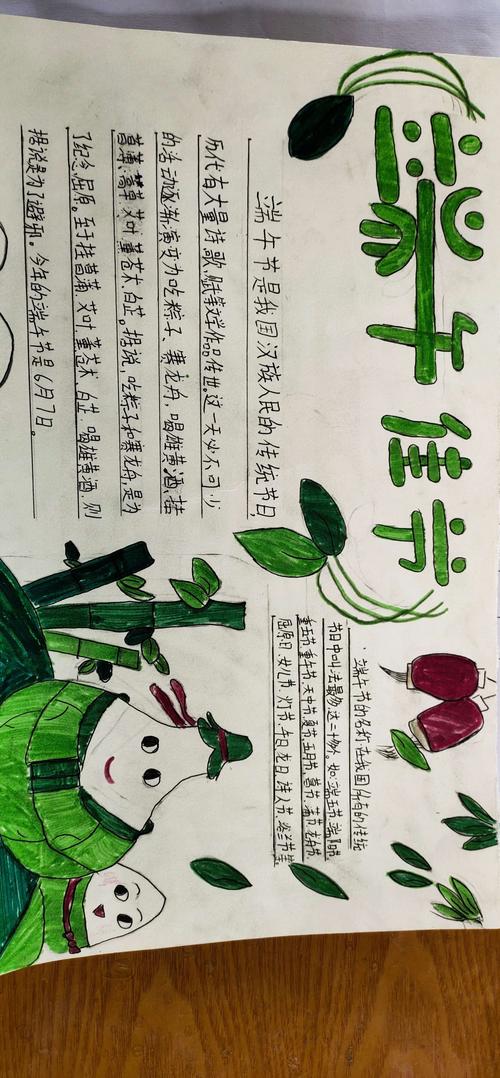 端午佳节
端午节是我国汉族人民的传统节日,
历代有大量诗歌、赋等文学作品传世。这一天必不可少
的活动逐渐演变为吃粽子、赛龙舟,喝雄黄酒,挂
菖蒲、蒿草、艾叶、薰苍术、白芷。据说,吃粽子和赛龙舟,是为
了纪念屈原。至于挂菖蒲、艾叶、薰苍术、白芷、喝雄黄酒,则
据说是为了避邪。今年的端午节是6月7日。
端午节的名称在我国所有的传统
节日中叫法最多,这一奇妙。如:端五节、端阳节、
重五节、重午节、天中节、夏节、五月节、菖节、蒲节、龙舟节、
屈原日、女儿节、灯节、午日、龙日、诗人节、